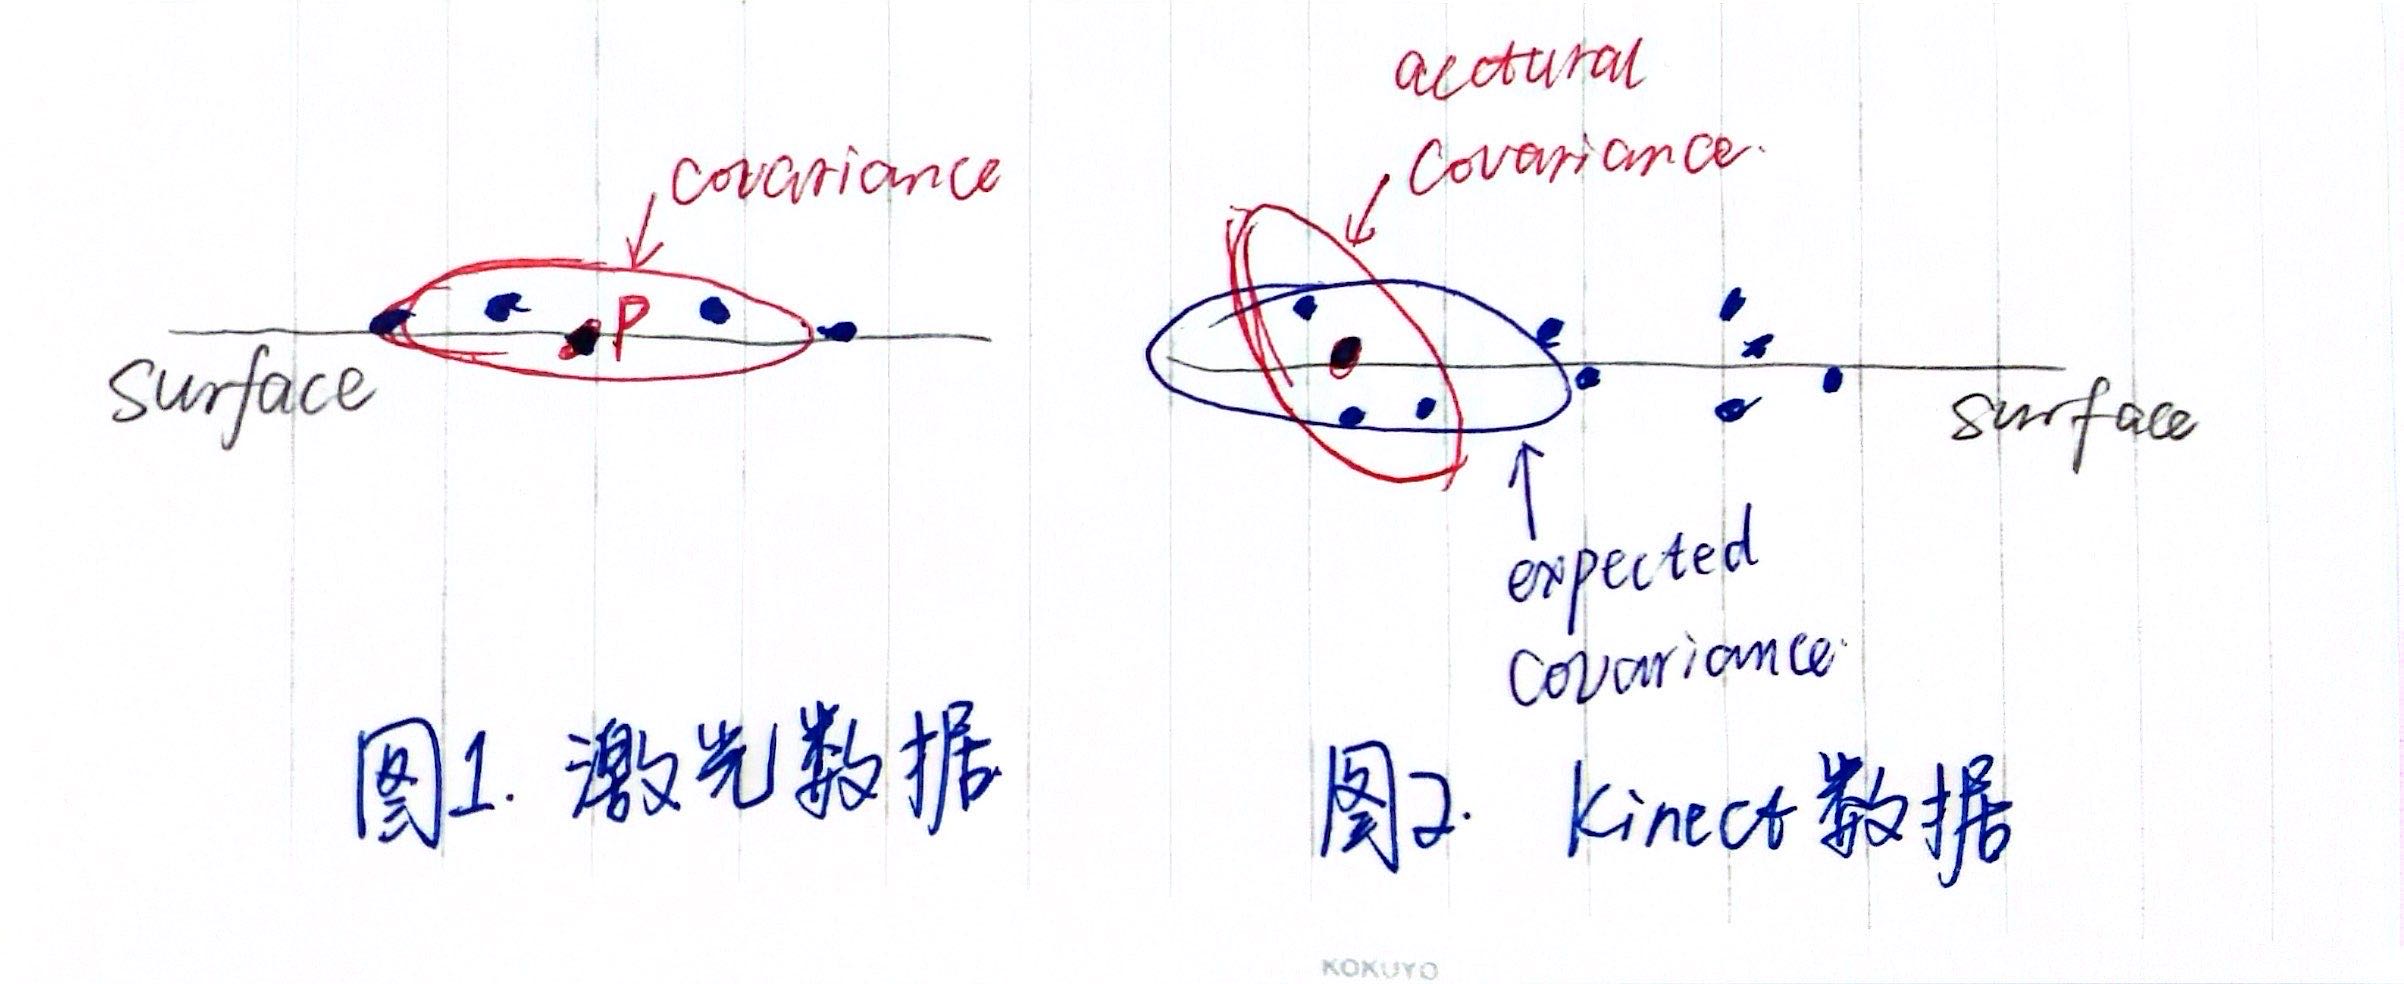 covariance
P
surface
图1. 激光数据
acctural
covariance.
surface
expected
covariance.
图2. Kinect数据
KOKUYO